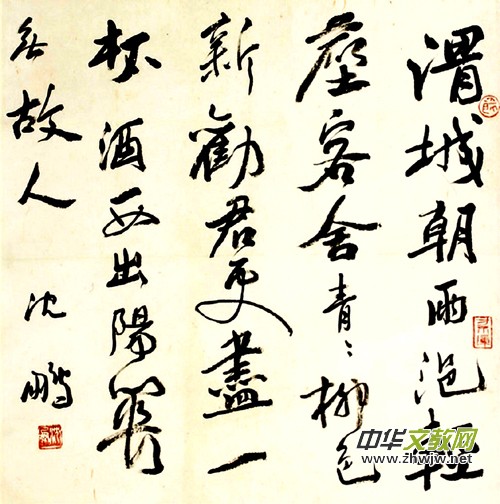 渭城朝雨浥輕
塵客舍青〻柳色
新勸君更盡一
杯酒西出陽關
無故人
沈鵬
中华文教网
www.zhwjw.net